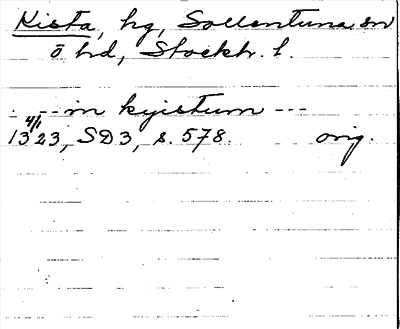 Kista, hg, Sollentuna sn
ö hd, Stockh. l.
--- in kyistum ---
13 4/1 23, SD 3, s. 578. orig.